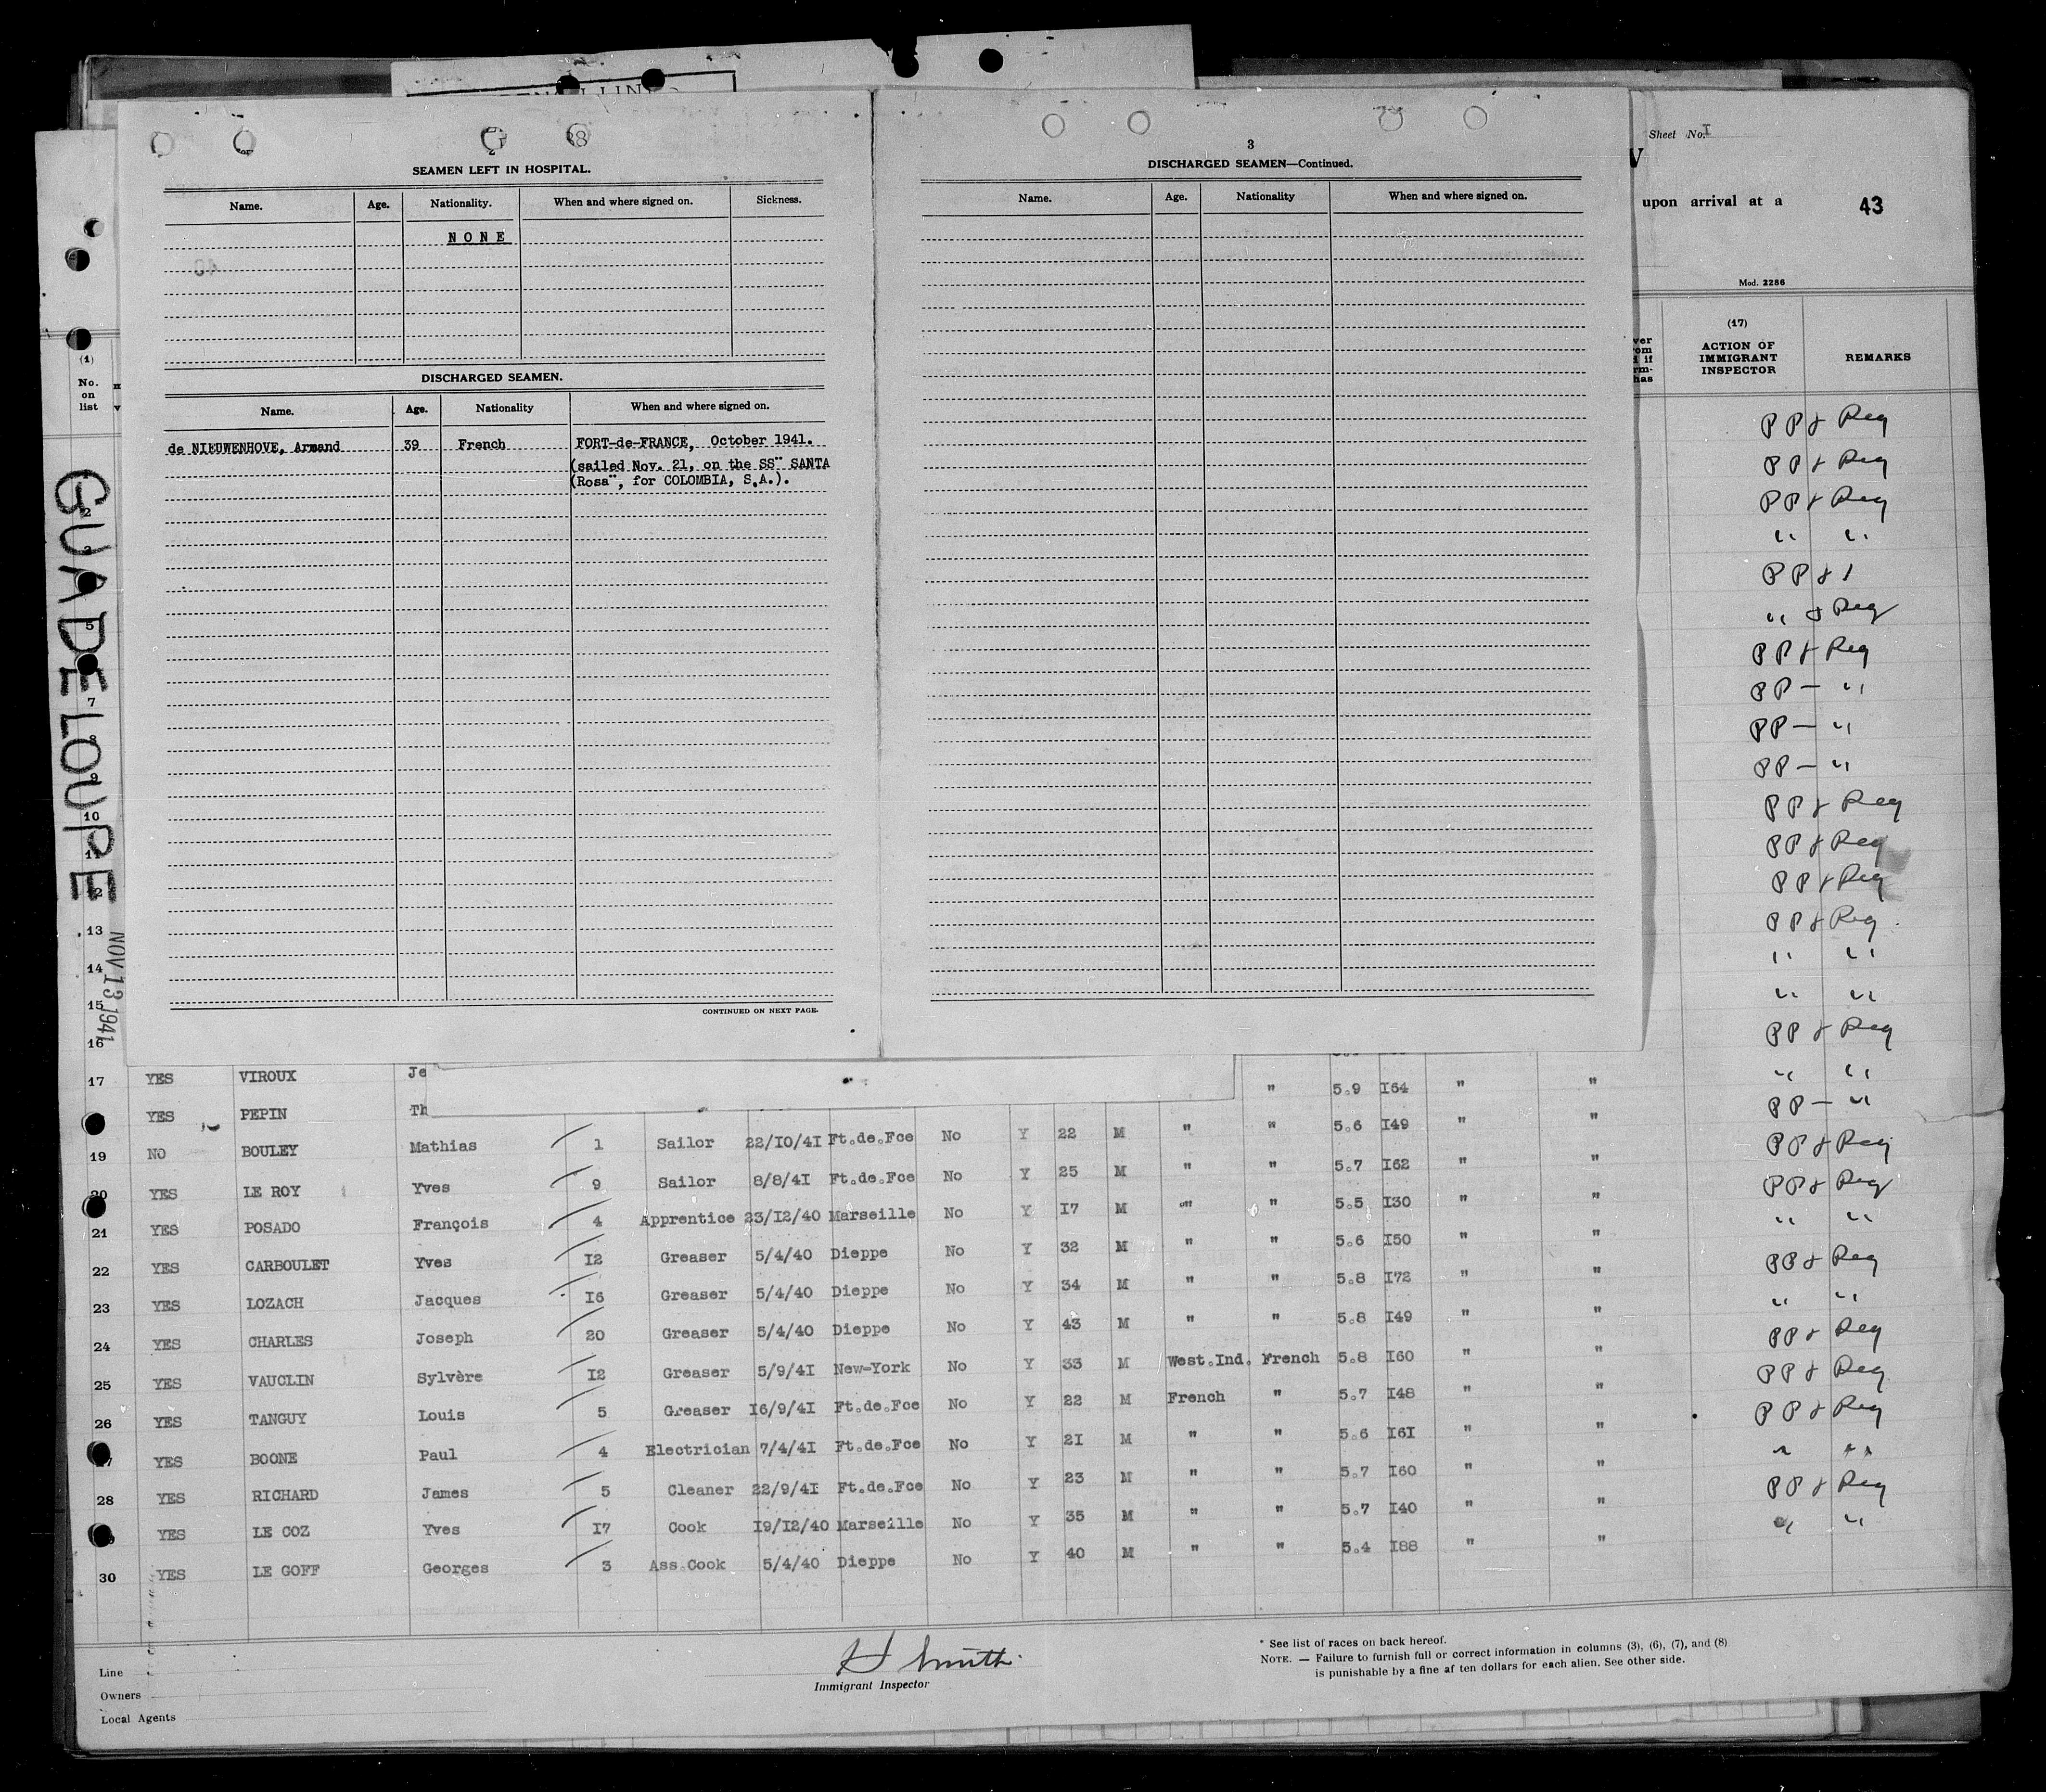 Sheet No. I
43
upon arrival at a
Mod. 2286
2
SEAMEN LEFT IN HOSPITAL.
Name. Age. Nationality. When and where signed on. Sickness.
NONE
DISCHARGED SEAMEN.
Name. Age. Nationality When and where signed on.
de NIEUWENHOVE, Armand 39 French FORT-de-FRANCE, October 1941.
(sailed Nov. 21, on the SS" SANTA
(Rosa", for COLOMBIA, S.A.).
CONTINUED ON NEXT PAGE.
3
DISCHARGED SEAMEN—Continued.
Name. Age. Nationality When and where signed on.
(1)
No.
on
list
(17)
ACTION OF
IMMIGRANT
INSPECTOR
REMARKS
GUADELOUPE
NOV 13 1941
PP & Reg
PP & Reg
PP & Reg
" "
PP & 1
" & Reg
PP & Reg
PP — "
PP — "
PP — "
PP & Reg
PP & Reg
PP & Reg
PP & Reg
" "
" "
PP & Reg
" "
PP — "
PP & Reg
PP & Reg
" "
PP & Reg
" "
PP & Reg
PP & Reg
PP & Reg
" "
PP & Reg
" "
2
5
7
8
9
10
11
12
13
14
15
16
17 YES VIROUX Je " 5.9 I64 " "
YES PEPIN Th " " 5.6 I49 " "
19 NO BOULEY Mathias 1 Sailor 22/I0/4I Ft.de.Fce No Y 22 M " " 5.7 I62 " "
20 YES LE ROY Yves 9 Sailor 8/8/4I Ft.de.Fce No Y 25 M " " 5.5 I30 " "
21 YES POSADO François 4 Apprentice 23/I2/40 Marseille No Y I7 M " " 5.6 I50 " "
22 YES CARBOULET Yves I2 Greaser 5/4/40 Dieppe No Y 32 M " " 5.8 I72 " "
23 YES LOZACH Jacques I6 Greaser 5/4/40 Dieppe No Y 34 M " " 5.8 I49 " "
24 YES CHARLES Joseph 20 Greaser 5/4/40 Dieppe No Y 43 M West.Ind. French 5.8 I60 " "
25 YES VAUCLIN Sylvère I2 Greaser 5/9/4I New-York No Y 33 M French " 5.7 I48 " "
26 YES TANGUY Louis 5 Greaser I6/9/4I Ft.de.Fce No Y 22 M " " 5.6 I6I " "
YES BOONE Paul 4 Electrician 7/4/4I Ft.de.Fce No Y 2I M " " 5.7 I60 " "
28 YES RICHARD James 5 Cleaner 22/9/4I Ft.de.Fce No Y 23 M " " 5.7 I40 " "
YES LE COZ Yves I7 Cook I9/I2/40 Marseille No Y 35 M " " 5.4 I88 " "
30 YES LE GOFF Georges 3 Ass.Cook 5/4/40 Dieppe No Y 40 M
Line
Owners
Local Agents
H Smith
Immigrant Inspector
* See list of races on back hereof.
NOTE. — Failure to furnish full or correct information in columns (3), (6), (7), and (8)
is punishable by a fine af ten dollars for each alien. See other side.